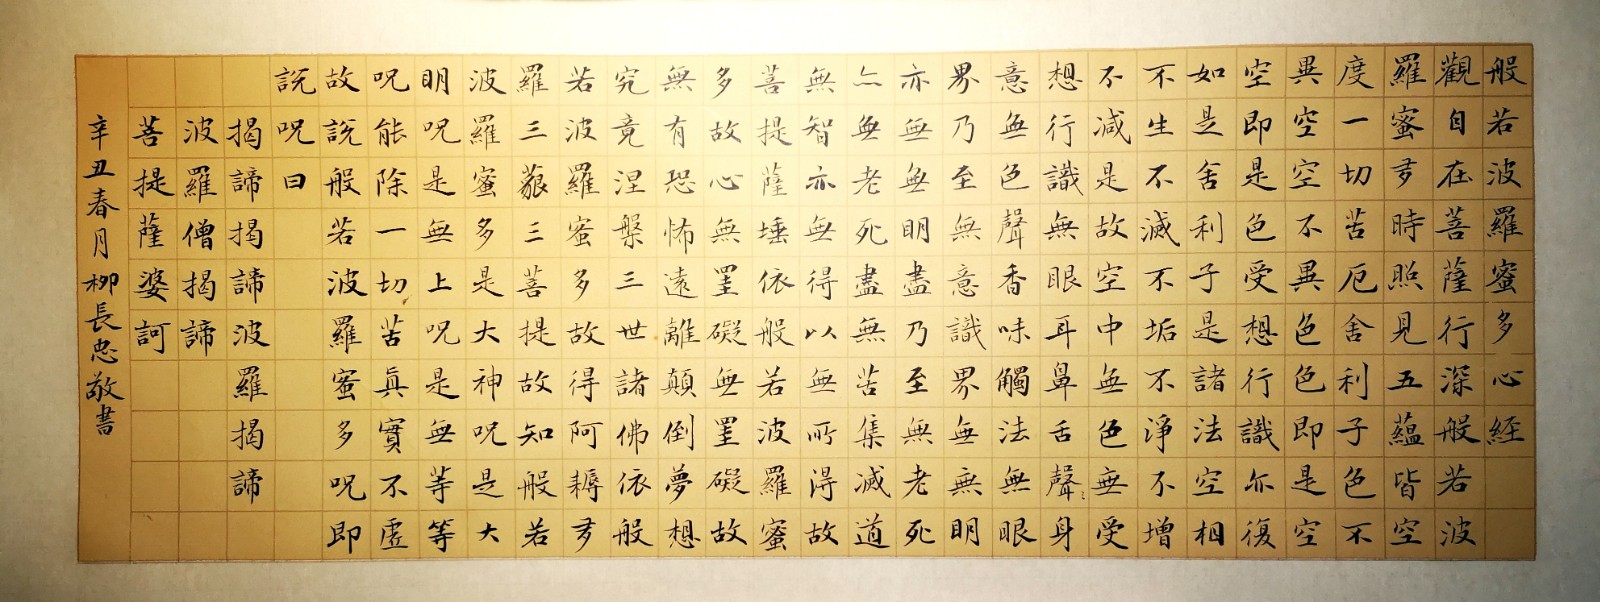 般若波羅蜜多心經
觀自在菩薩行深般若波
羅蜜多時照見五蘊皆空
度一切苦厄舍利子色不
異空空不異色色即是空
空即是色受想行識亦復
如是舍利子是諸法空相
不生不滅不垢不淨不增
不減是故空中無色無受
想行識無眼耳鼻舌聲身
意無色聲香味觸法無眼
界乃至無意識界無無明
亦無無明盡乃至無老死
亦無老死盡無苦集滅道
無智亦無得以無所得故
菩提薩埵依般若波羅蜜
多故心無罣礙無罣礙故
無有恐怖遠離顛倒夢想
究竟涅槃三世諸佛依般
若波羅蜜多故得阿耨多
羅三藐三菩提故知般若
波羅蜜多是大神呪是大
明呪是無上呪是無等等
呪能除一切苦真實不虛
故說般若波羅蜜多呪即
說呪曰
揭諦揭諦波羅揭諦
波羅僧揭諦
菩提薩婆訶
辛丑春月柳長忠敬書